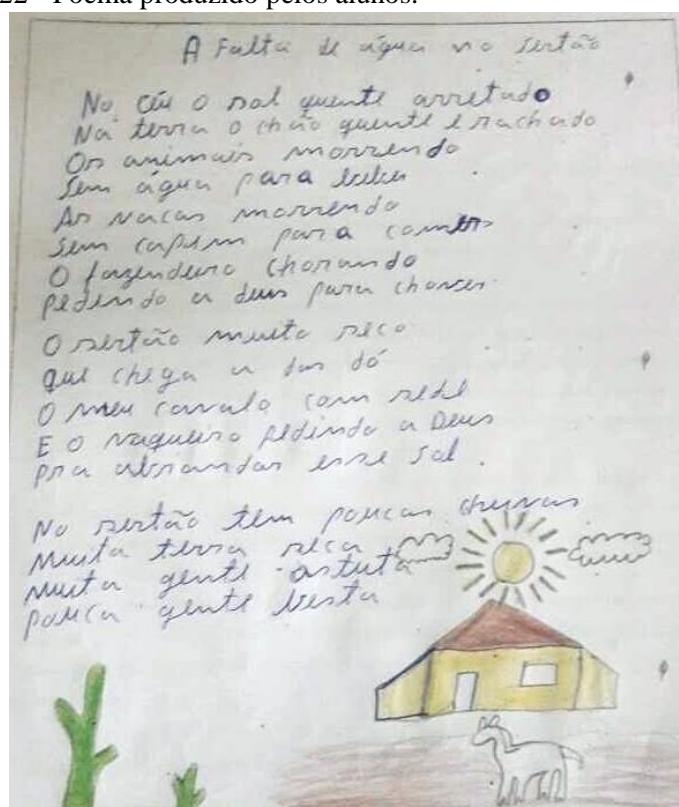 22 - Poema produzido pelos alunos.
A Falta de água no Sertão
No céu o sol quente arretado
Na terra o chão quente e rachado
Os animais morrendo
Sem água para beber
As vacas morrendo
Sem capim para comer
O fazendeiro chorando
pedindo a deus para chover.
O sertão muito seco
que chega a dar dó
O meu cavalo com sede
E o vaqueiro pedindo a Deus
pra abrandar esse sol.
No sertão tem poucas chuvas
Muita terra seca
Muita gente astuta
pouca gente besta